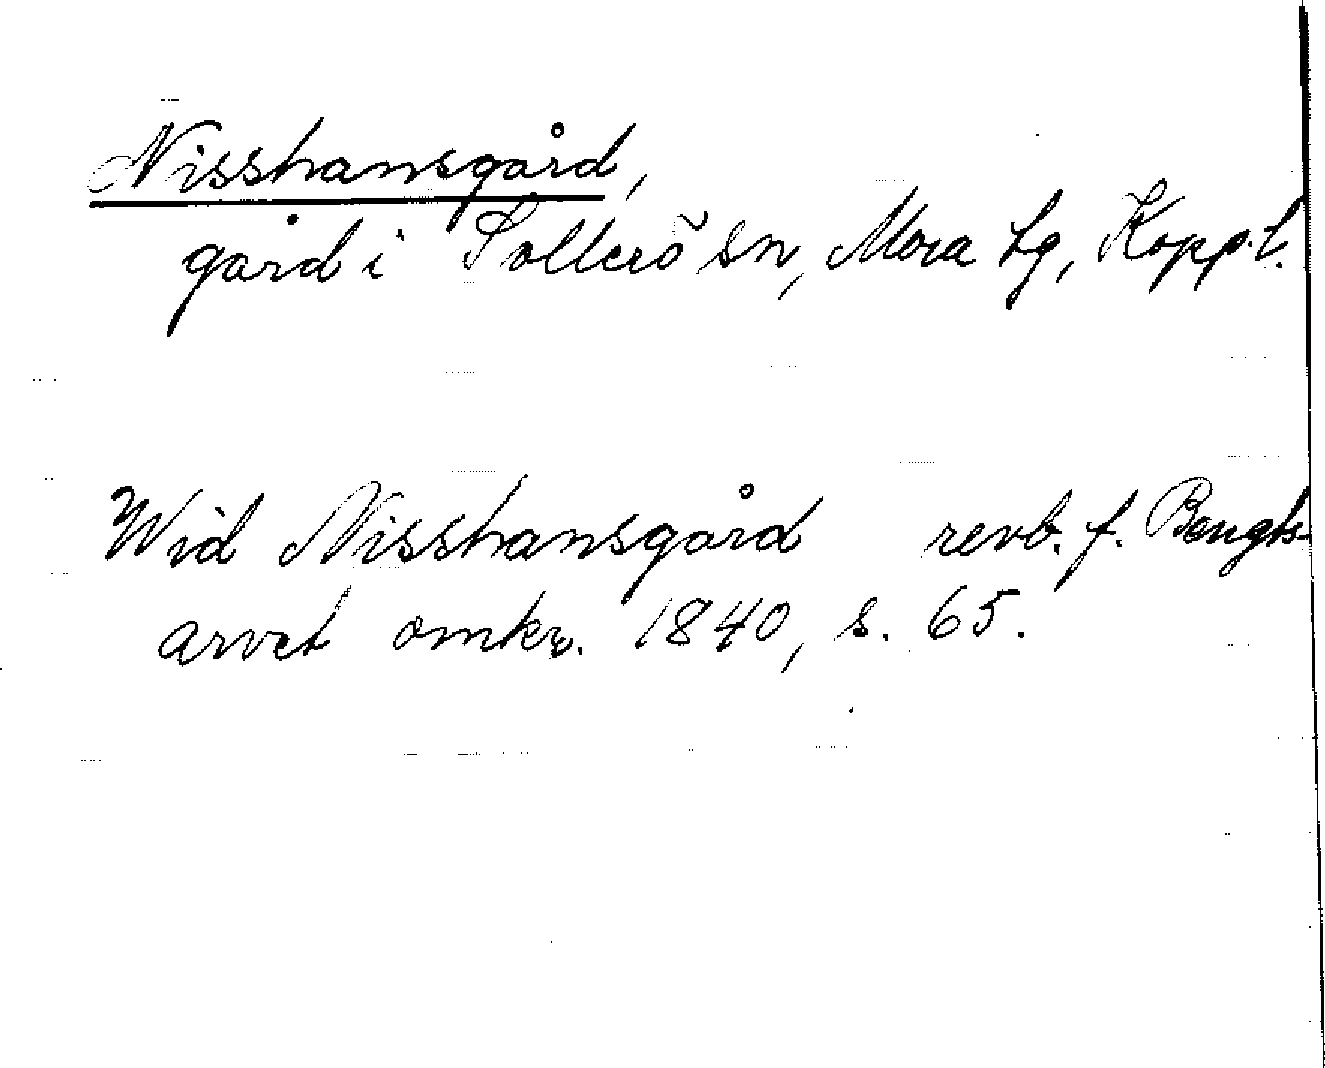 Nisshansgård,
gård i Sollerö sn, Mora tg, Koppl.
Wid Nisshansgård revb. f. Bengts-
arvet omkr. 1840, s. 65.